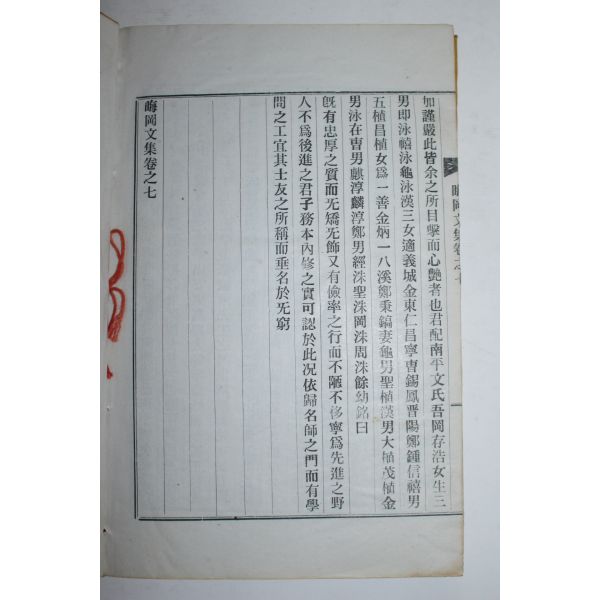 加謹嚴此皆余之所目擊而心艶者也君配南平文氏吾岡存浩女生三
男即泳禧泳龜泳漢三女適義城金東仁昌寧曺錫鳳晋陽鄭鍾信禧男
五植昌植女爲一善金炳一八溪鄭秉鎬妻龜男聖植漢男大植茂植金
男泳在曺男麒淳麟淳鄭男經洙聖洙岡洙周洙餘幼銘曰
旣有忠厚之質而旡矯旡飾又有儉率之行而不陋不侈寧爲先進之野
人不爲後進之君子務本內修之實可認於此况依歸名師之門而有學
問之工宜其士友之所稱而垂名於旡窮
晦岡文集卷之七
晦岡文集卷之七